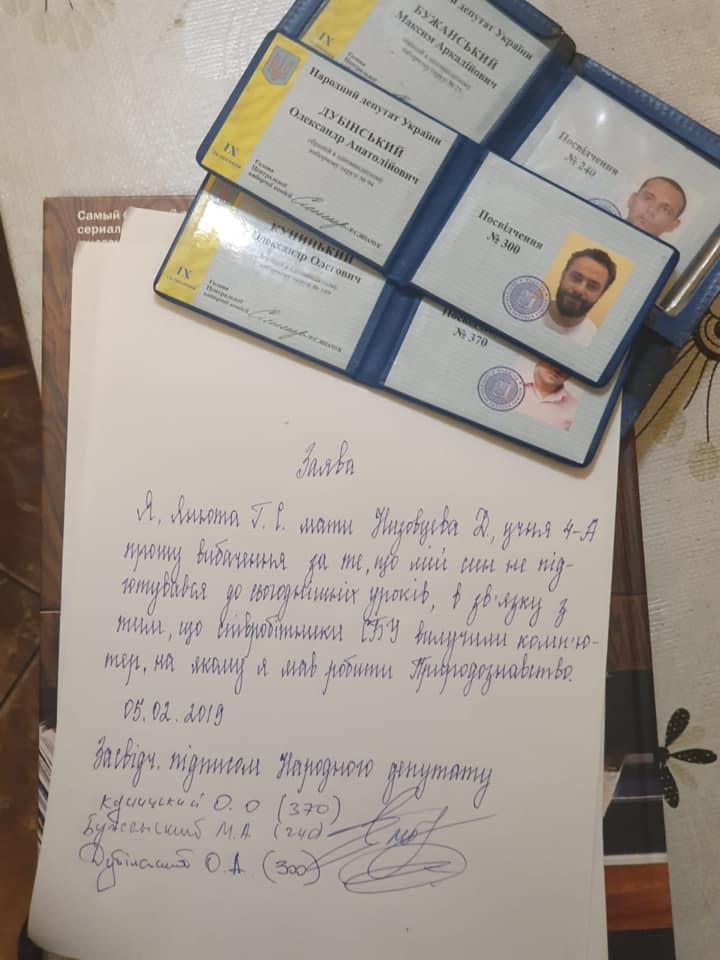 БУЖАНСЬКИЙ
Максим Аркадійович
обраний в одномандатному
виборчому окрузі № 25
ІХ
Народний депутат України
ДУБІНСЬКИЙ
Олександр Анатолійович
обраний в одномандатному
виборчому окрузі № 94
ІХ
скликання
Голова
Центральної
виборчої комісії
Посвідчення
№ 240
Посвідчення
№ 300
КУНИЦЬКИЙ
Олександр Олегович
обраний в одномандатному
виборчому окрузі № 169
ІХ
скликання
Голова
Центральної
виборчої комісії
Посвідчення
№ 370
Самый
сериал
Заява
Я, Янюта Г. Є. мати Низовцева Д, учня 4-А
прошу вибачення за те, що мій син не під-
готувався до сьогоднішніх уроків, в зв'язку з
тим, що співробітники СБУ вилучили комп'ю-
тер, на якому я мав робити Природознавство.
05.02.2019
Засвідч. підписом Народного депутату
Куницкий О. О (370)
Бужанский М.А (240)
Дубінский О.А. (300)